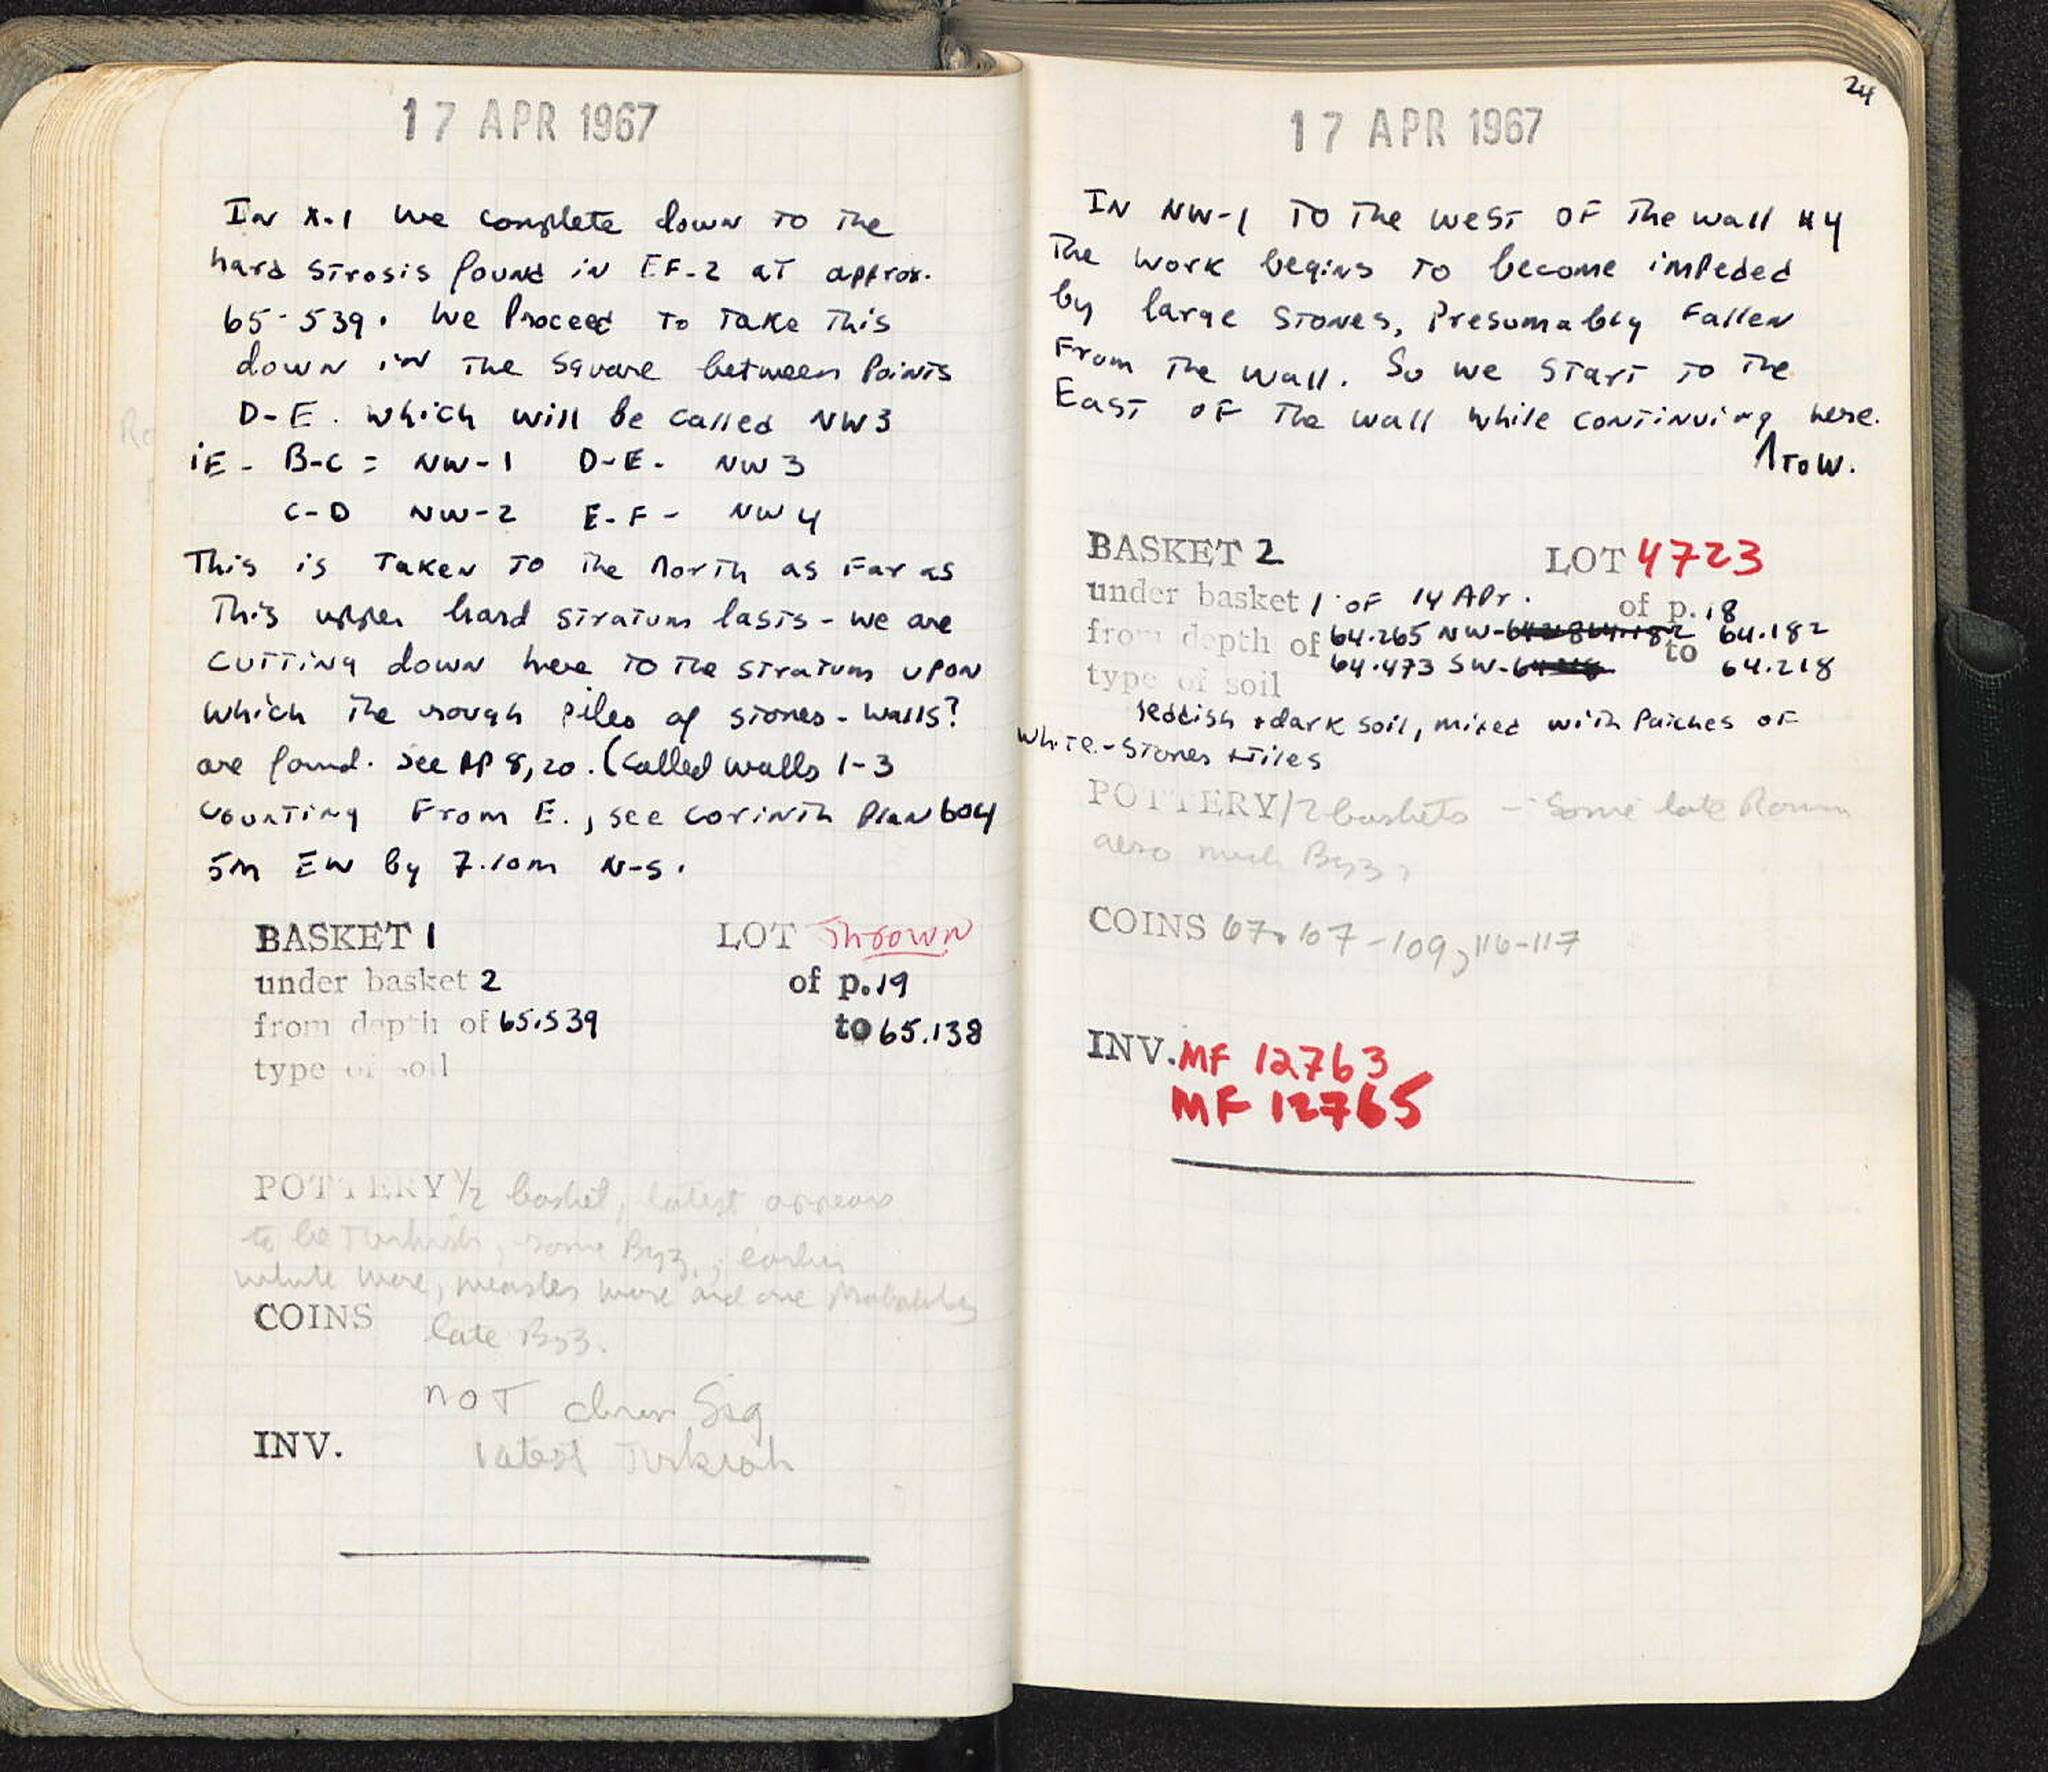 17 APR 1967
In X-1 we complete down to the
hard strosis found in EF-2 at approx.
65-539. We Proceed to take this
down in the square between Points
D-E. which will be called NW3
iE - B-C = NW-1 D-E- NW 3
C-D NW-2 E-F- NW 4
This is taken to the north as far as
this upper hard stratum lasts - we are
cutting down here to the stratum upon
which the rough piles of stones - walls?
are found. See PP 8,20. (called walls 1-3
counting From E., see Corinth Plan 604
5m EW by 7.10m N-S.
BASKET 1 LOT Thrown
under basket 2 of p. 19
from depth of 65.539 to 65.138
type of soil
POTTERY 1/2 basket, latest appears
to be Turkish, some Byz., earlier
white ware, measles ware and one probably
COINS late Byz.
not clear Sig
INV. latest Turkish
24
17 APR 1967
In NW-1 to the west of the wall #4
The work begins to become impeded
by large stones, Presumably Fallen
From the wall. So we start to the
East of the wall while continuing here.
↑ to W.
BASKET 2 LOT 4723
under basket 1 of 14 Apr. of p. 18
from depth of 64.265 NW- to 64.182
64.473 SW- 64.218
type of soil
reddish + dark soil, mixed with Patches of
white - stones + tiles
POTTERY 1/2 baskets - Some late Roman
also much Byz.
COINS 67.107-109, 116-117
INV. MF 12763
MF 12765